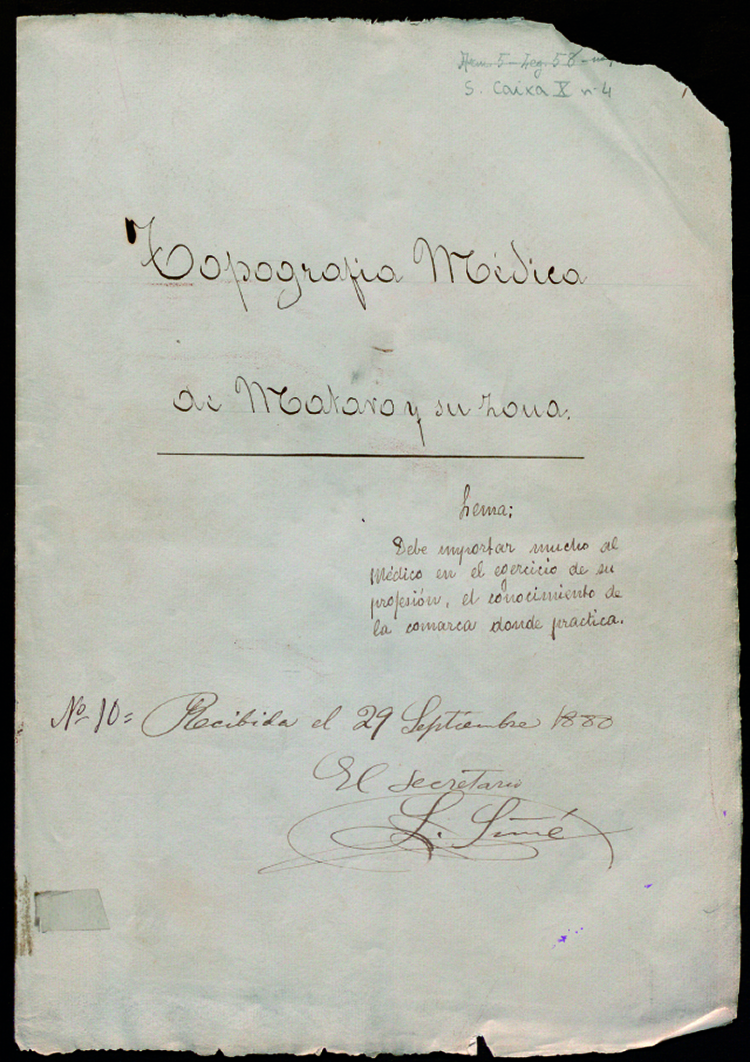 Arm. 5 - Leg. 58 -
S. Caixa X nº 4
Topografia Médica
de Mataro y su zona.
Lema;
Debe importar mucho al
Médico en el egercicio de su
profesión, el conocimiento de
la comarca donde practica.
Nº 10= Recibida el 29 Septiembre 1880
El secretario
L. Suñé